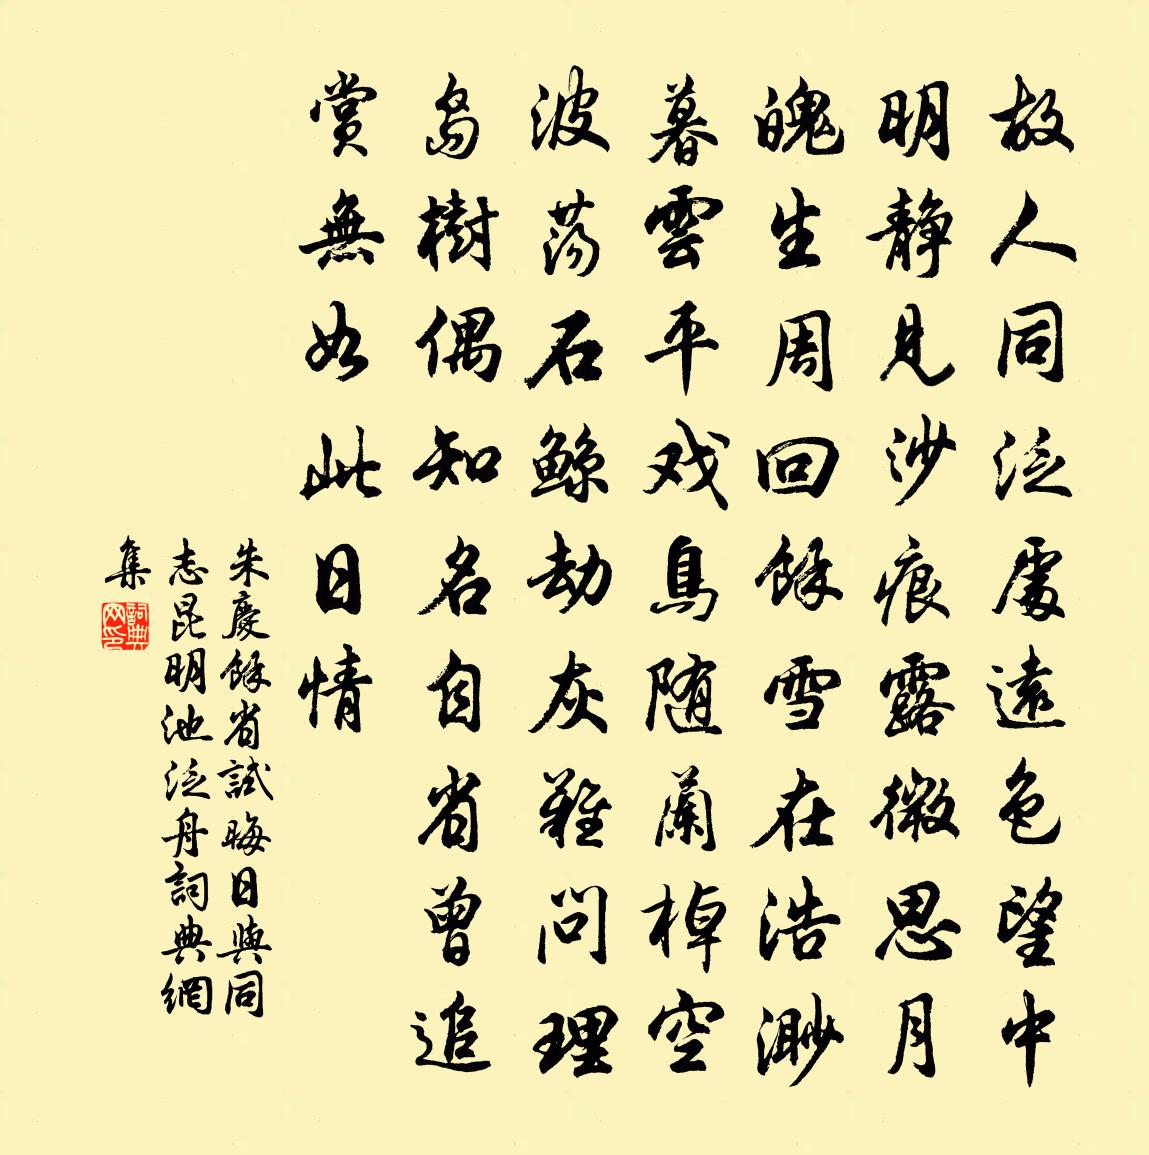 故人同泛處遠色望中
明靜見沙痕露微思月
魄生周回餘雪在浩渺
暮雲平戏鳥隨蘭棹空
波荡石鲸劫灰難問理
島樹偶知名自省曾追
賞無如此日情
朱慶餘省試晦日與同
志昆明池泛舟詞典網
集
詞典
网印